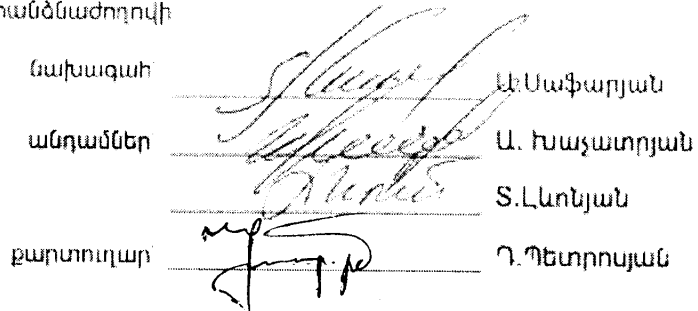 անձնաժողովի
նախագահ Ա.Սաֆարյան
անդամներ Ա. Խաչատրյան
Տ.Լևոնյան
քարտուղար Դ.Պետրոսյան